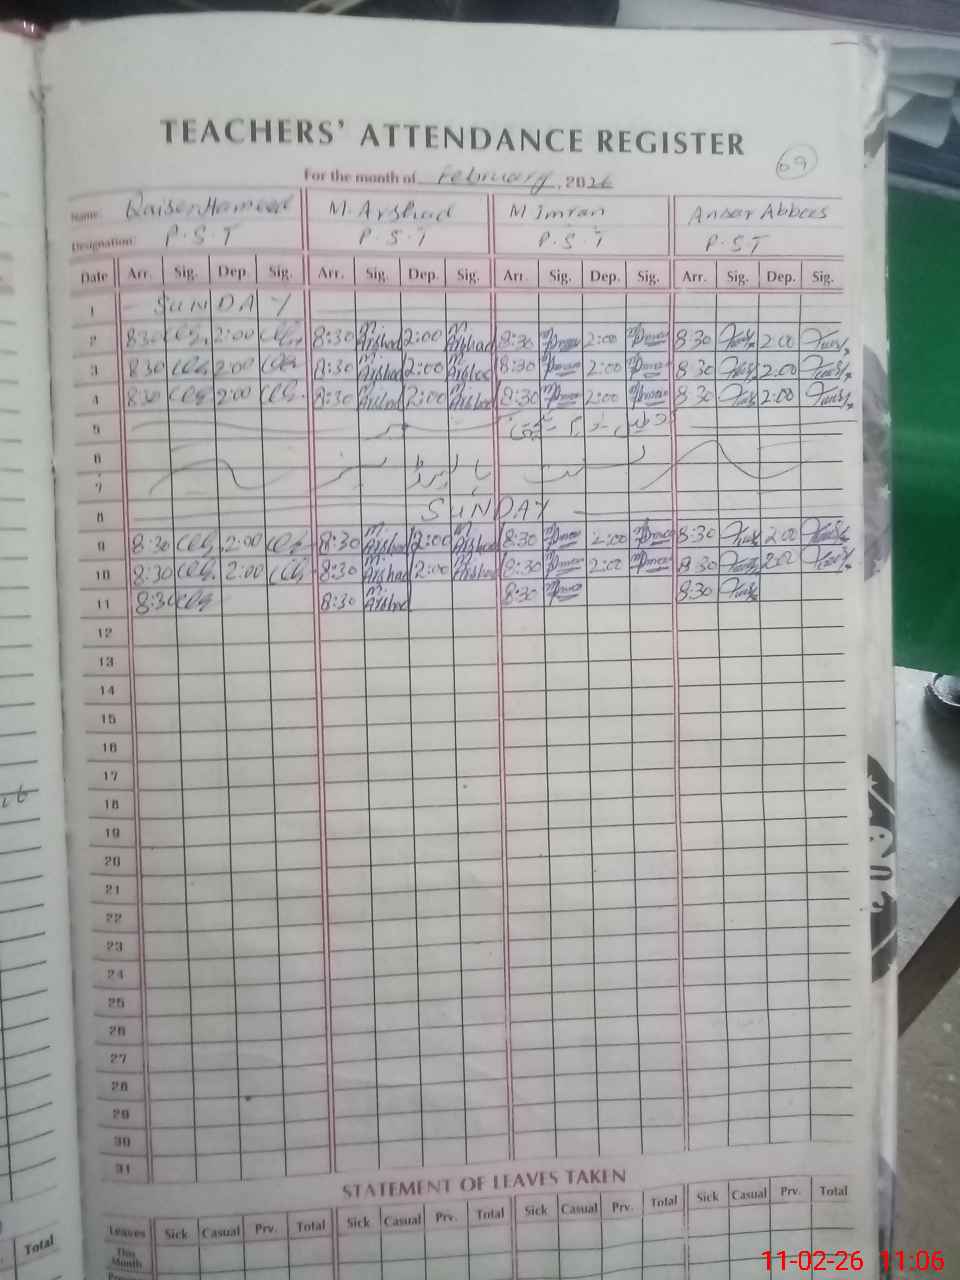 TEACHERS' ATTENDANCE REGISTER
69
For the month of February, 2026
Name: Qaiser Hameed M. Arshad M Imran Ansar Abbas
Designation: P.S.T P.S.T P.S.T P.S.T
Date Arr. Sig. Dep. Sig. Arr. Sig. Dep. Sig. Arr. Sig. Dep. Sig. Arr. Sig. Dep. Sig.
1 SUNDAY
2 8:30 2:00 8:30 M. Arshad 2:00 M. Arshad 8:30 2:00 8:30 2:00
3 8:30 2:00 8:30 M. Arshad 2:00 M. Arshad 8:30 2:00 8:30 2:00
4 8:30 2:00 8:30 M. Arshad 2:00 M. Arshad 8:30 2:00 8:30 2:00
5
6
7
8 SUNDAY
9 8:30 2:00 8:30 M. Arshad 2:00 M. Arshad 8:30 2:00 8:30 2:00
10 8:30 2:00 8:30 M. Arshad 2:00 M. Arshad 8:30 2:00 8:30 2:00
11 8:30 8:30 M. Arshad 8:30 8:30
12
13
14
15
16
17
18
19
20
21
22
23
24
25
26
27
28
29
30
31
STATEMENT OF LEAVES TAKEN
Leaves Sick Casual Prv. Total Sick Casual Prv. Total Sick Casual Prv. Total Sick Casual Prv. Total
This Month
Total
11-02-26 11:06